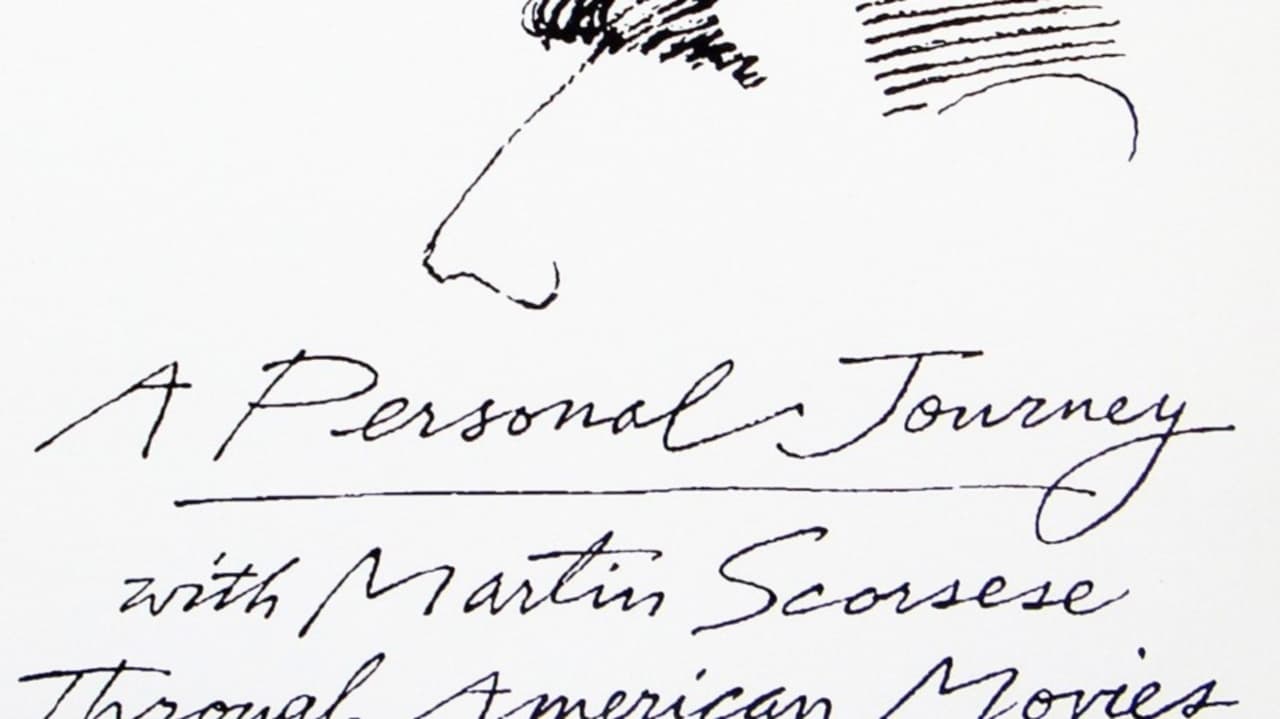 A Personal Journey
with Martin Scorsese
Through American Movies